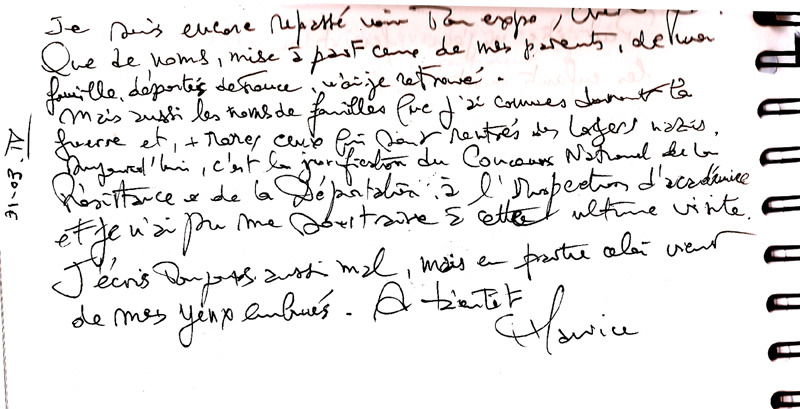 Je suis encore repassé voir ton expo,
Que de noms, mise à part ceux de mes parents, de ma
famille, déportés de France, n'ai-je retrouvé.
Mais aussi les noms de familles que j'ai connues durant la
guerre et, + rares ceux qui sont rentrés des Lagers nazis.
Aujourd'hui, c'est la du Concours National de la
Résistance & de la Déportation, à l'Inspection d'académie
et je n'ai pu me soustraire à cette ultime visite.
J'écris toujours aussi mal, mais en partie celà vient
de mes yeux embués. A bientôt
Maurice
31-03.